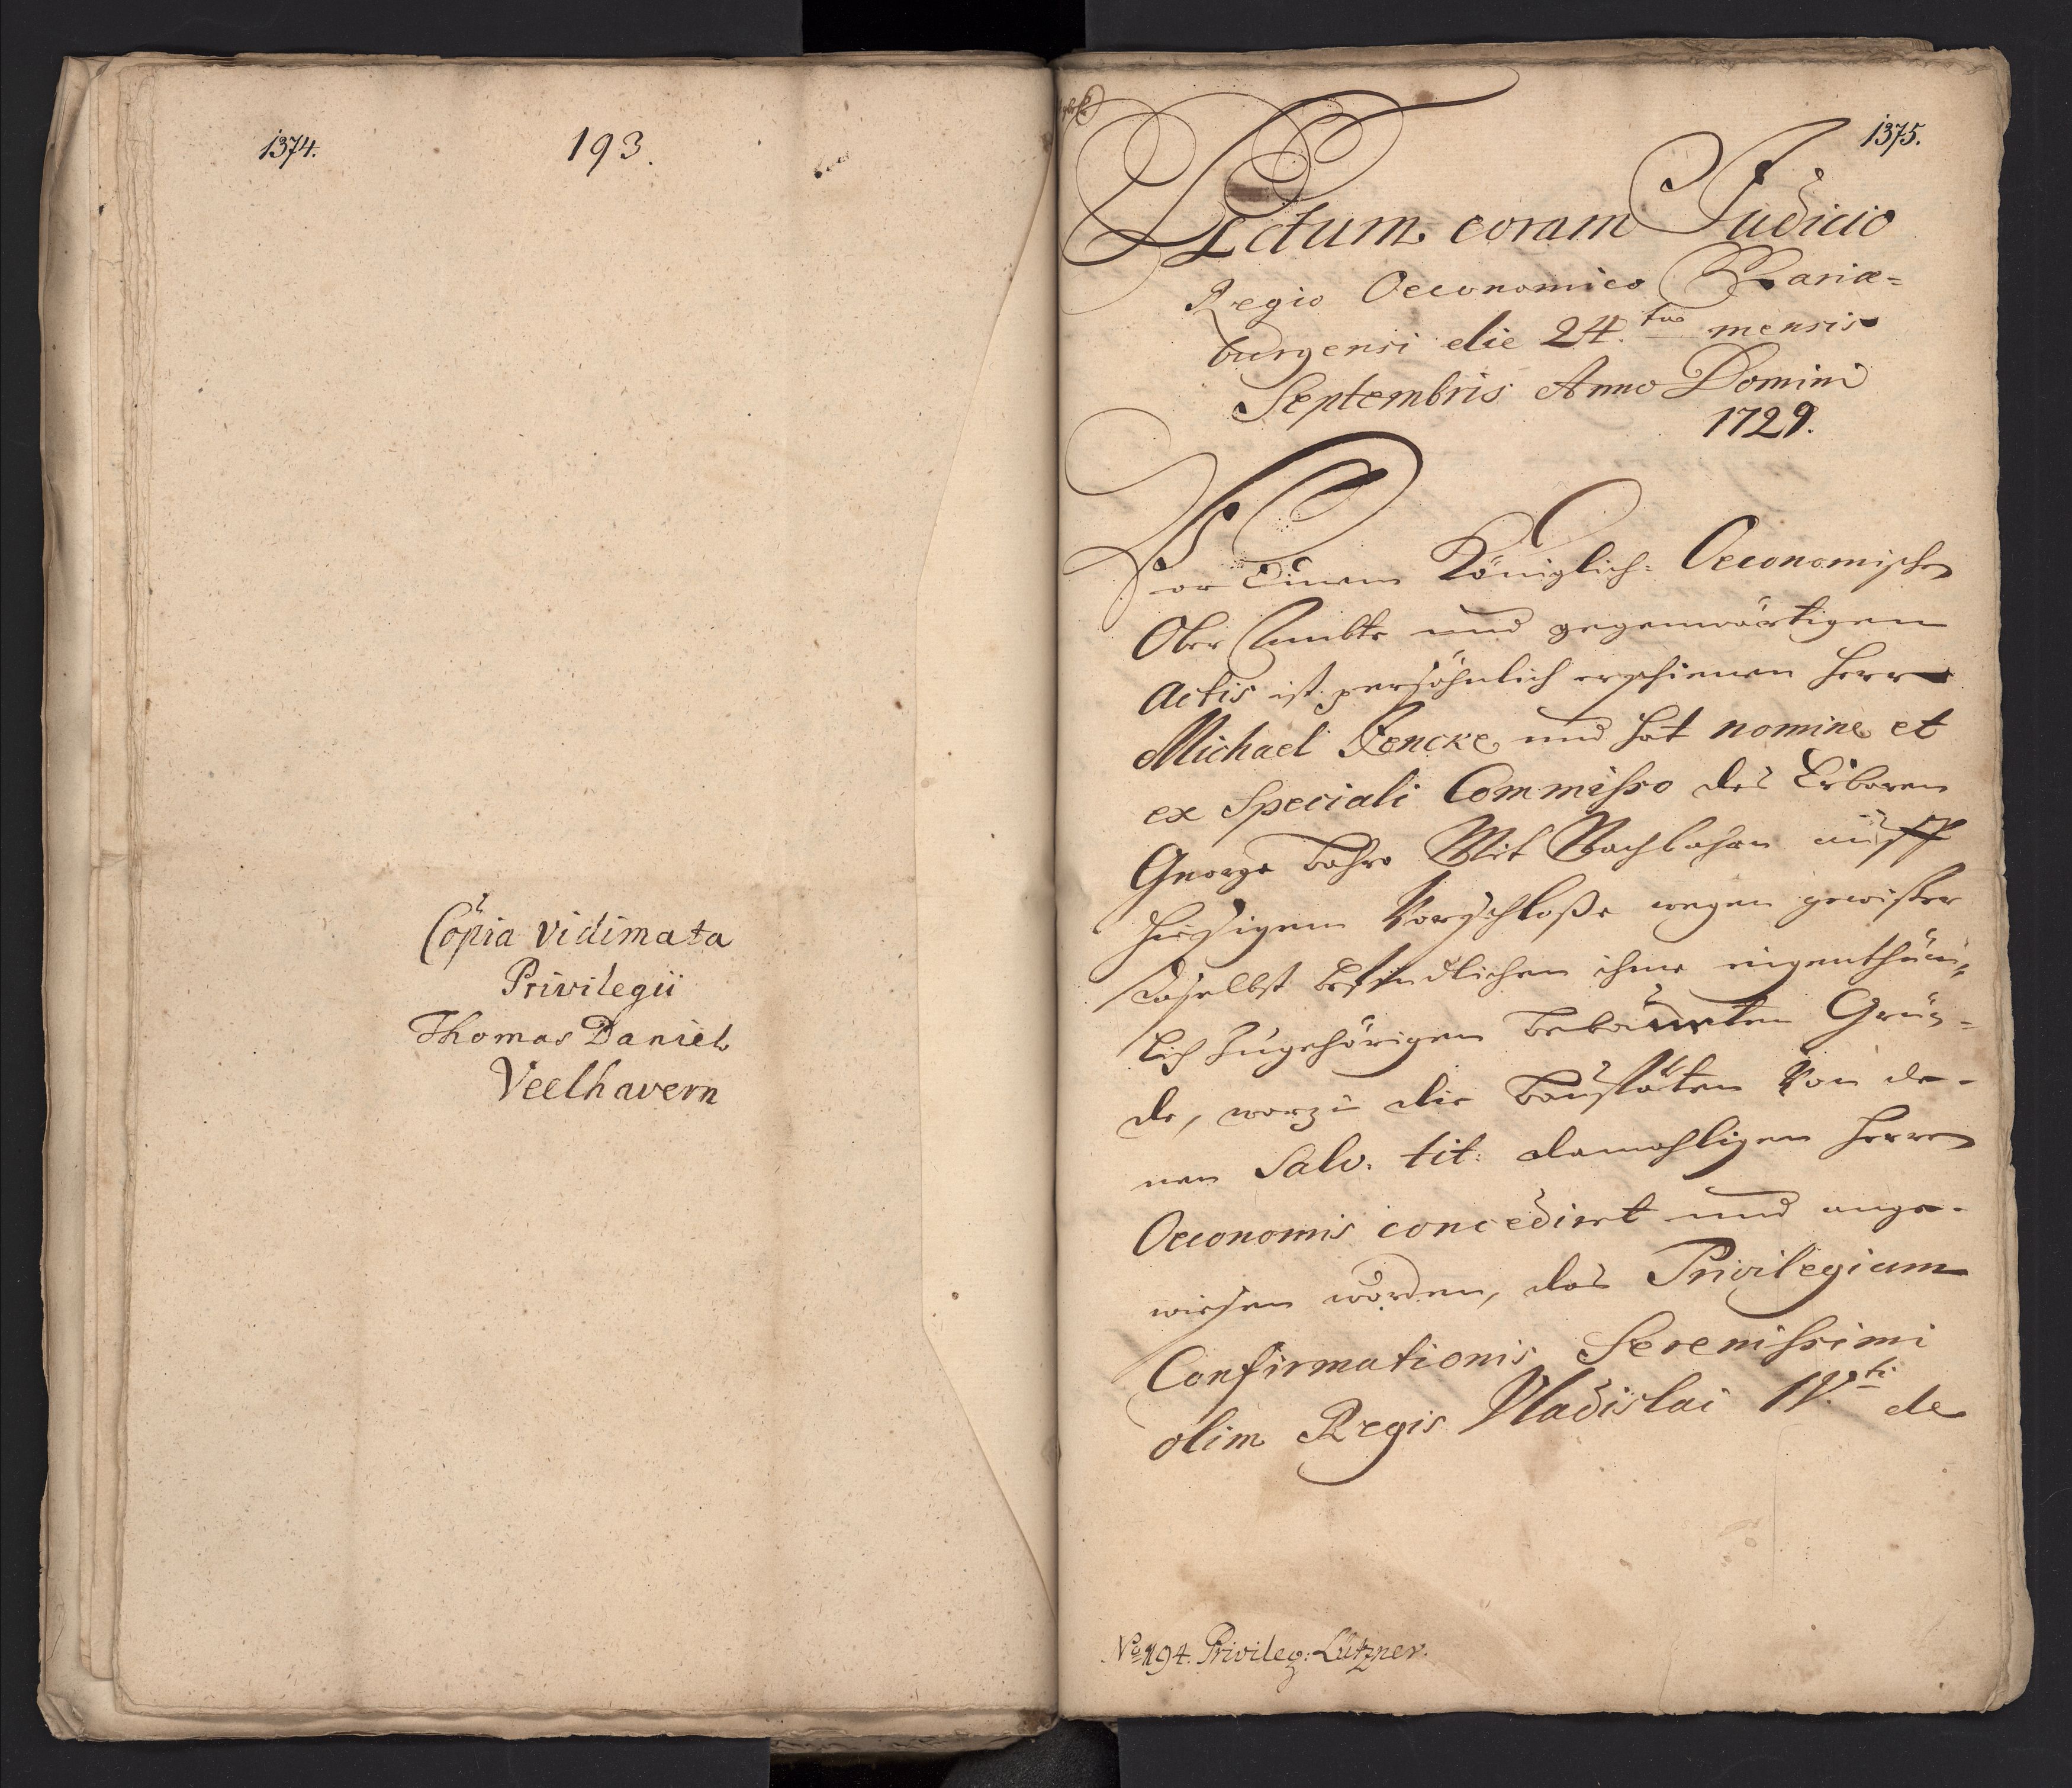 1374.
193.
Copia vidimata
Privilegii
Thomas Daniel
Veelhavern
1375.
Actum coram Judicio
Regio Oeconomico Mariæ=
burgensi die 24.tâ mensis
Septembris Anno Domini
1729.
Vor Einem Königlich: Oeconomischen
Ober Ambte und gegenwärtigen
Actis ist persöhnlich erschienen Herr
Michael Jencke und hat nomine et
ex Speciali Commisso des Erbaren
George Bahr Mit Nachbahren auff
hiesigem Vorschloße wegen gewißer
daselbst befindlichen ihme eigenthüm=
lich zugehörigen bebauten Grün=
de, worzu die Baustäten Von de=
nen Salv. tit: damahligen Herren
Oeconomis concedirt und ange=
wiesen worden, das Privilegium
Confirmationis Serenissimi
olim Regis Vladislai IV.ti de
No 194. Privileg: Lützner.